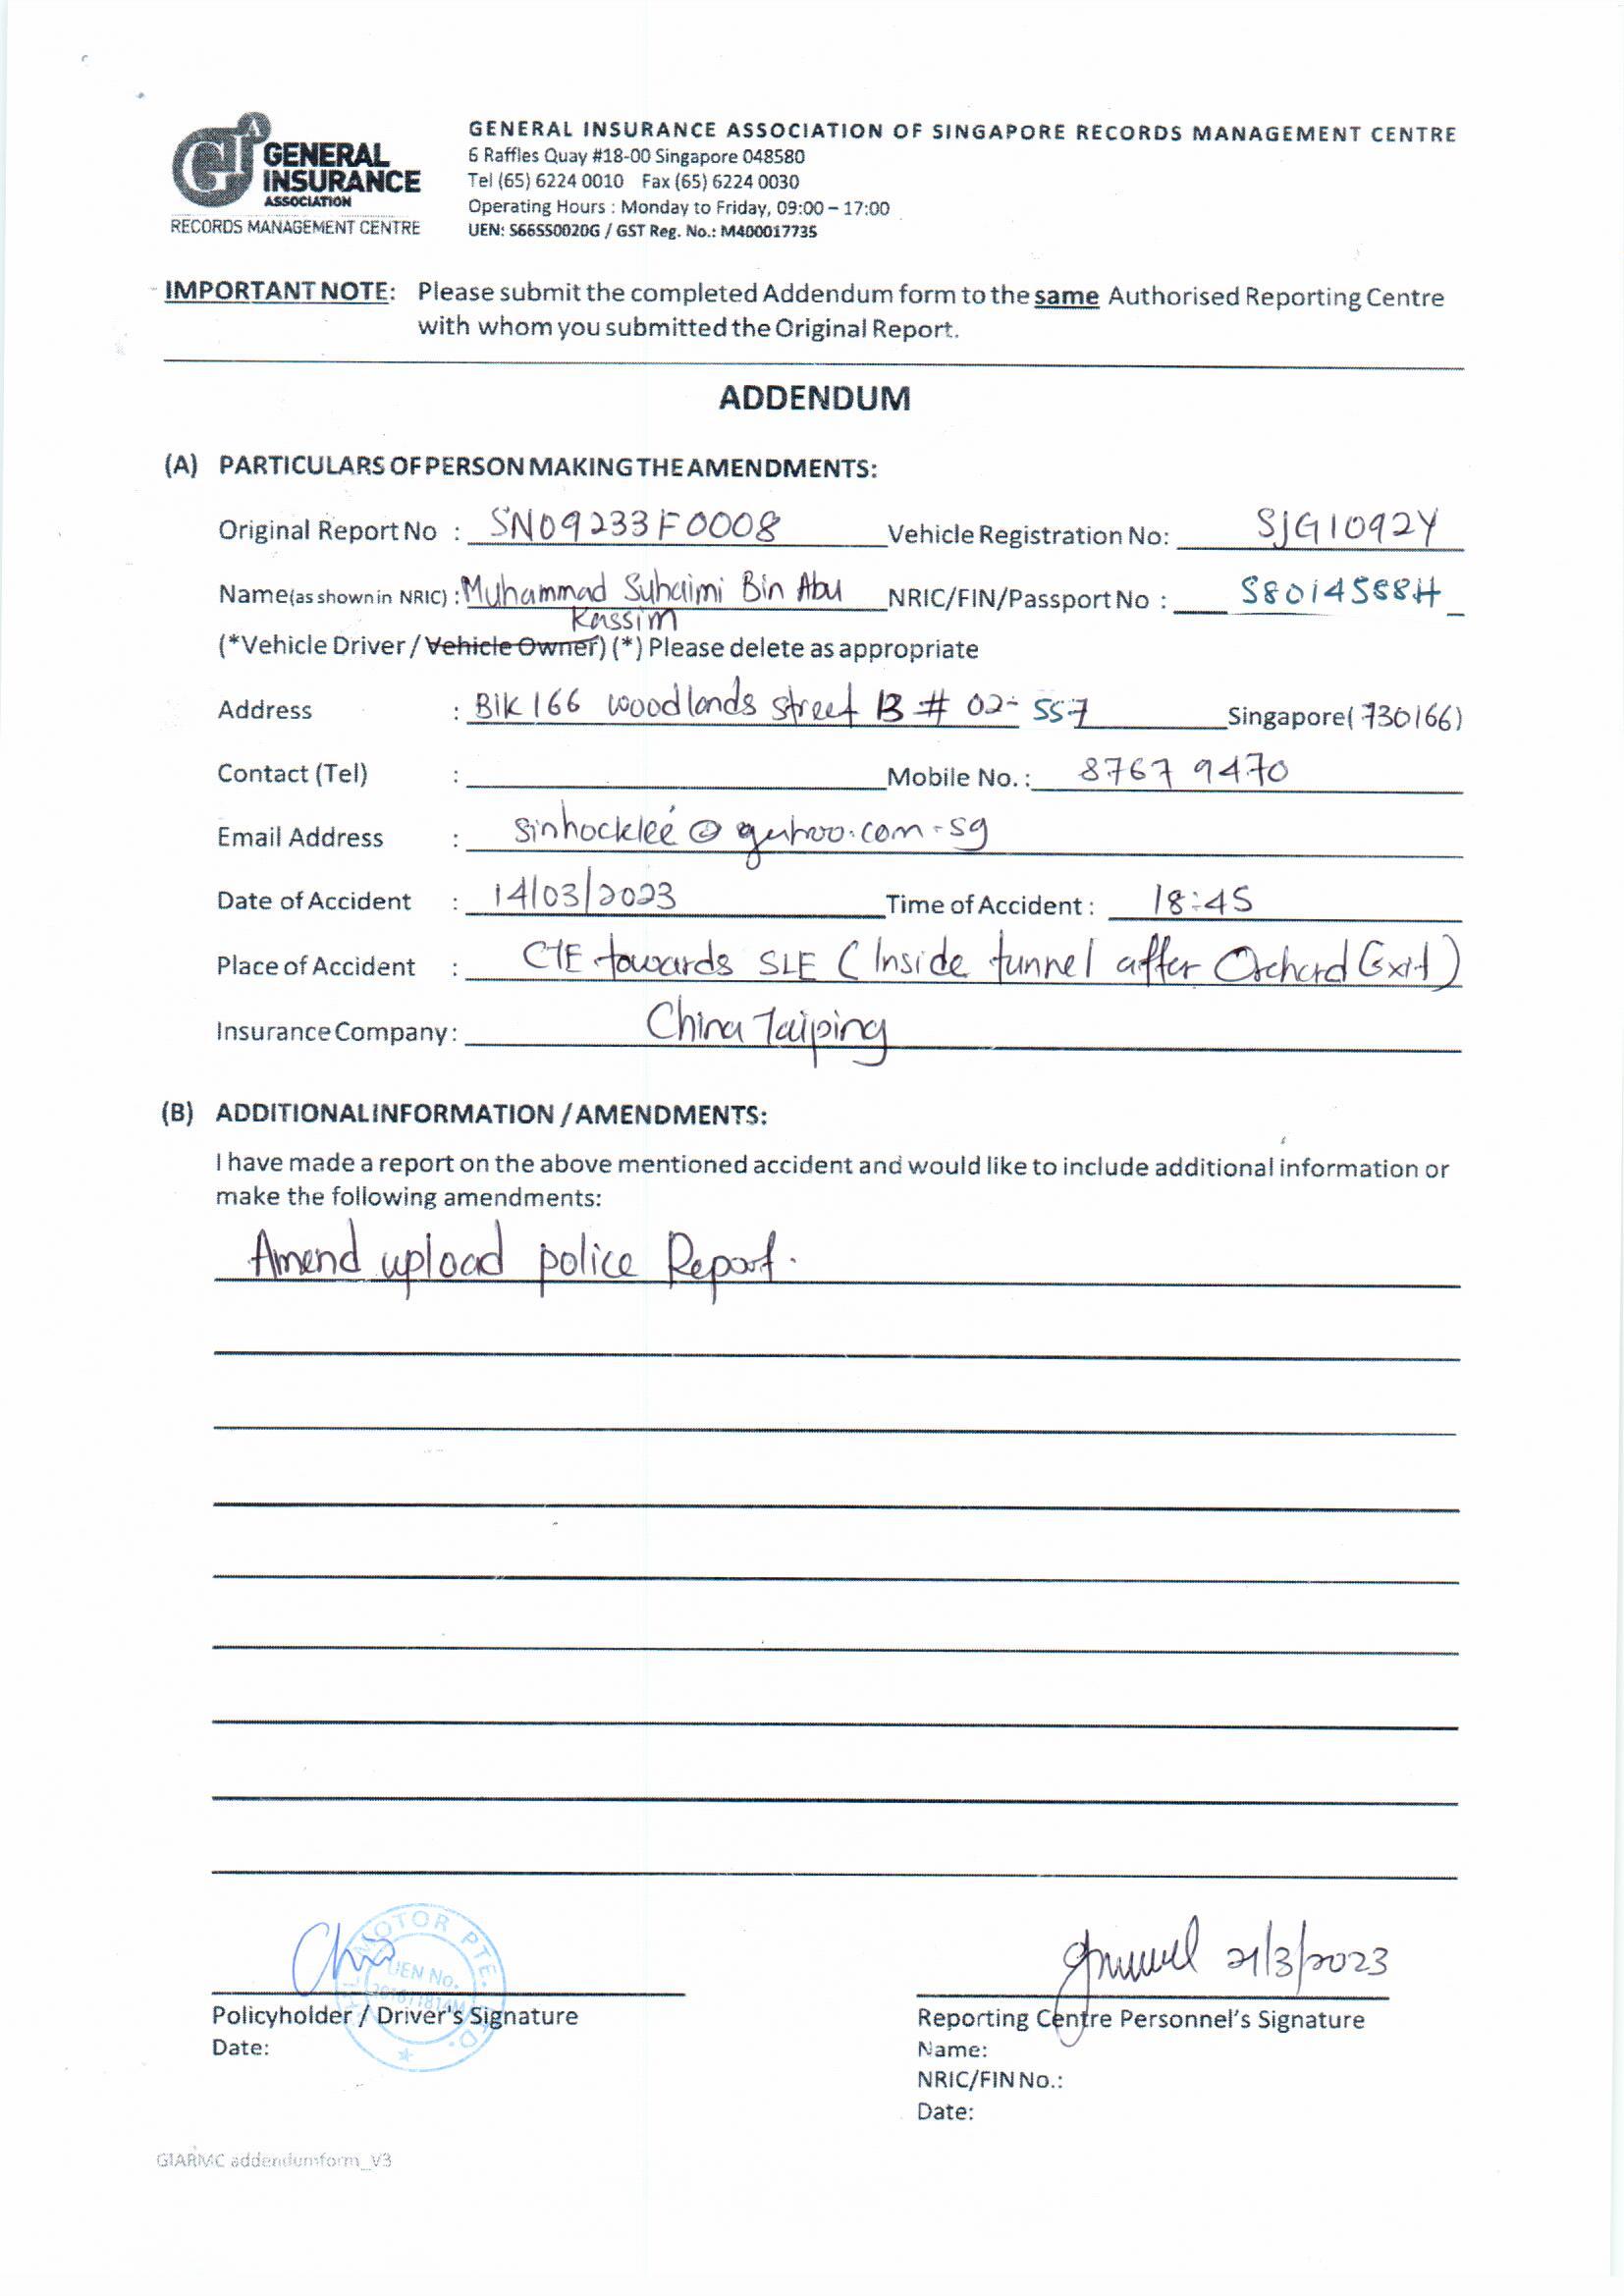 GENERAL
INSURANCE
ASSOCIATION
RECORDS MANAGEMENT CENTRE
GENERAL INSURANCE ASSOCIATION OF SINGAPORE RECORDS MANAGEMENT CENTRE
6 Raffles Quay #18-00 Singapore 048580
Tel (65) 6224 0010 Fax (65) 6224 0030
Operating Hours : Monday to Friday, 09:00 – 17:00
UEN: S66SS0020G / GST Reg. No.: M400017735
IMPORTANT NOTE: Please submit the completed Addendum form to the same Authorised Reporting Centre
with whom you submitted the Original Report.
ADDENDUM
(A) PARTICULARS OF PERSON MAKING THE AMENDMENTS:
Original Report No : SN09233F0008 Vehicle Registration No: SJG1092Y
Name(as shown in NRIC) : Muhammad Suhaimi Bin Abu NRIC/FIN/Passport No : S8014588H
Kassim
(*Vehicle Driver / Vehicle Owner) (*) Please delete as appropriate
Address : Blk 166 woodlands street 13 # 02-557 Singapore( 730166)
Contact (Tel) : Mobile No. : 8767 9470
Email Address : sinhocklee@yahoo.com.sg
Date of Accident : 14/03/2023 Time of Accident : 18:45
Place of Accident : CTE towards SLE ( Inside tunnel after Orchard Exit)
Insurance Company : China Taiping
(B) ADDITIONAL INFORMATION / AMENDMENTS:
I have made a report on the above mentioned accident and would like to include additional information or
make the following amendments:
Amend upload police Report.
MOTOR PTE.
UEN No.
21/3/2023
Policyholder / Driver's Signature
Date:
Reporting Centre Personnel's Signature
Name:
NRIC/FIN No.:
Date:
GIARMC addendumform_V3